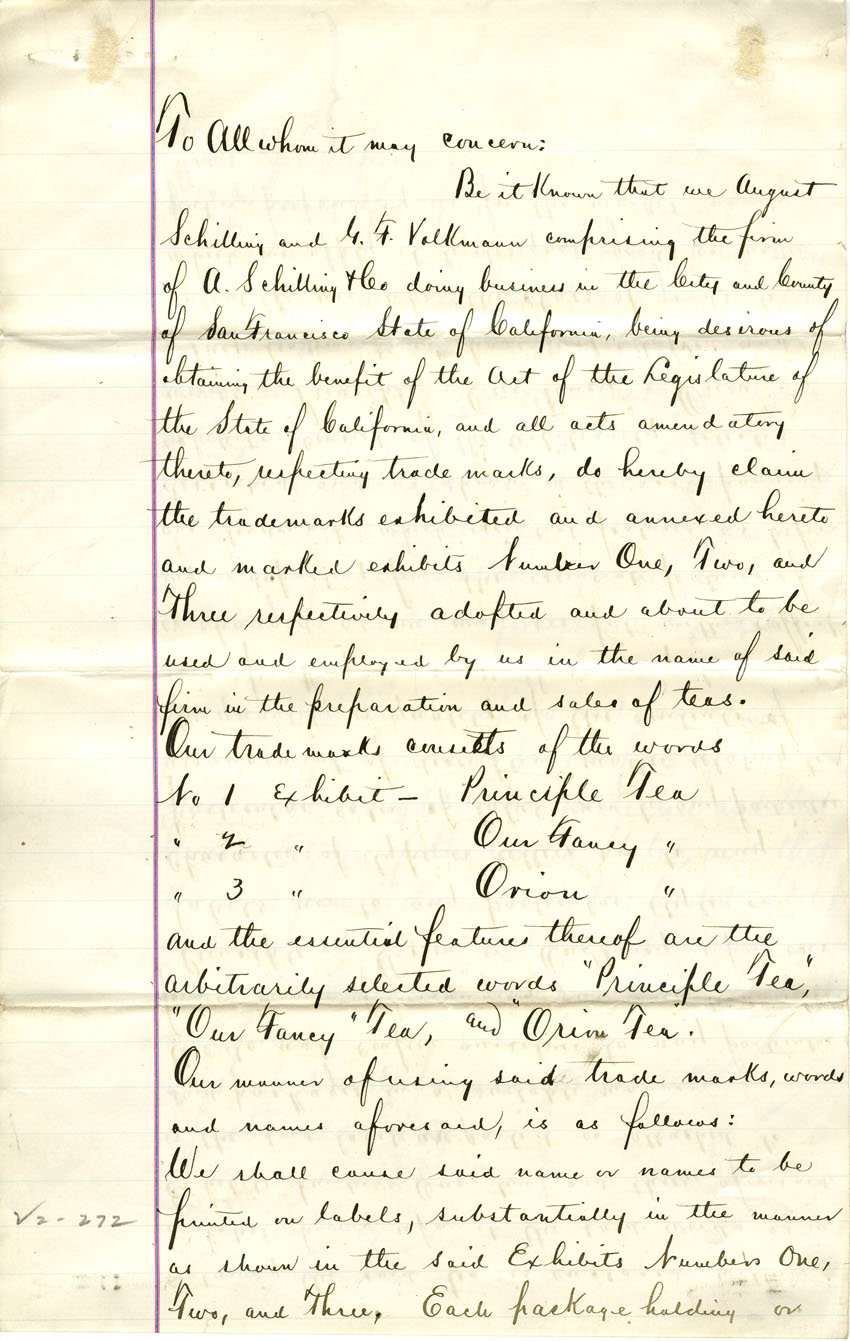 To All whom it may concern:
Be it Known that we August
Schilling and G. F. Volkmann comprising the firm
of A. Schilling & Co doing business in the City and County
of San Francisco State of California, being desirous of
obtaining the benefit of the Act of the Legislature of
the State of California, and all acts amendatory
thereto, respecting trade marks, do hereby claim
the trademarks exhibited and annexed hereto
and marked exhibits Number One, Two, and
Three respectively adopted and about to be
used and employed by us in the name of said
firm in the preparation and sales of teas.
Our trade marks consists of the words
No 1 Exhibit — Principle Tea
" 2 " Our Fancy "
" 3 " Orion "
and the essential features thereof are the
arbitrarily selected words "Principle Tea",
"Our Fancy" Tea, and "Orion Tea".
Our manner of using said trade marks, words
and names aforesaid, is as follows:
We shall cause said name or names to be
printed on labels, substantially in the manner
as shown in the said Exhibits Numbers One,
Two, and Three. Each package holding or
V2-272